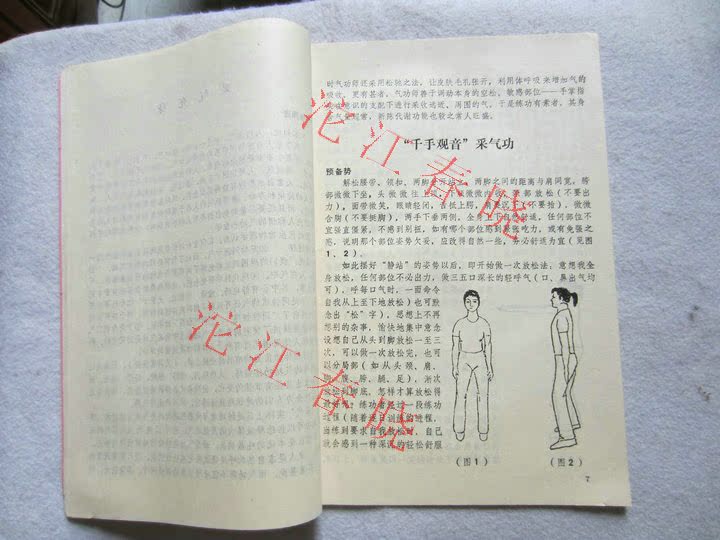 时气功师还采用松驰之法，让皮肤毛孔张开，利用体呼吸来增加气的
吸收，更有甚者，气功师善于调动本身的空松、敏感部位——手掌指
在意识的支配下进行采收远近、周围的气，于是练功有素者，其身
气 起常，新陈代谢功能也较之常人旺盛。
“千手观音”采气功
预备势
解松腰带、领扣，两脚 开站立，两脚之间的距离与肩同宽。臀
部微微下坐，头微微往上 ，下 微微内收，裆部放松（不要出
力），面带微笑，眼睛轻闭，舌抵上腭，肩要沉 （不要抬），微微
合胸（不要挺胸），两手下垂两侧，全身上下自然舒适，任何部位不
宜强直僵紧，不感到别扭，如有哪个部位感到紧张吃力，或有免强之
感，说明那个部位姿势欠妥，应改得自然一些，务必舒适为宜（见图
1、2）。
如此摆好“静站”的姿势以后，即开始做一次放松法：意想我全
身放松，任何部位不必出力，做三五口深长的轻呼气（口、鼻出气均
可），呼每口气时，一面命令
自我从上至下地放松）也可默
念出“松”字），思想上不再
想别的杂事，愉快地集中意念
设想自己从头到脚放松一至三
次，可以做一次放松完，也可
以分局部（如从头颈、肩、
胸、腹、胯、腿、足），渐次
放松到脚底，怎样才算放松得
最好呢，练功者经过一段练功
过程（随着逐日训练的进程，
当练到要求自我放松时，自己
就会感到一种深沉的轻松舒服
（图1）
（图2）
7
沱江春晓
沱江春晓